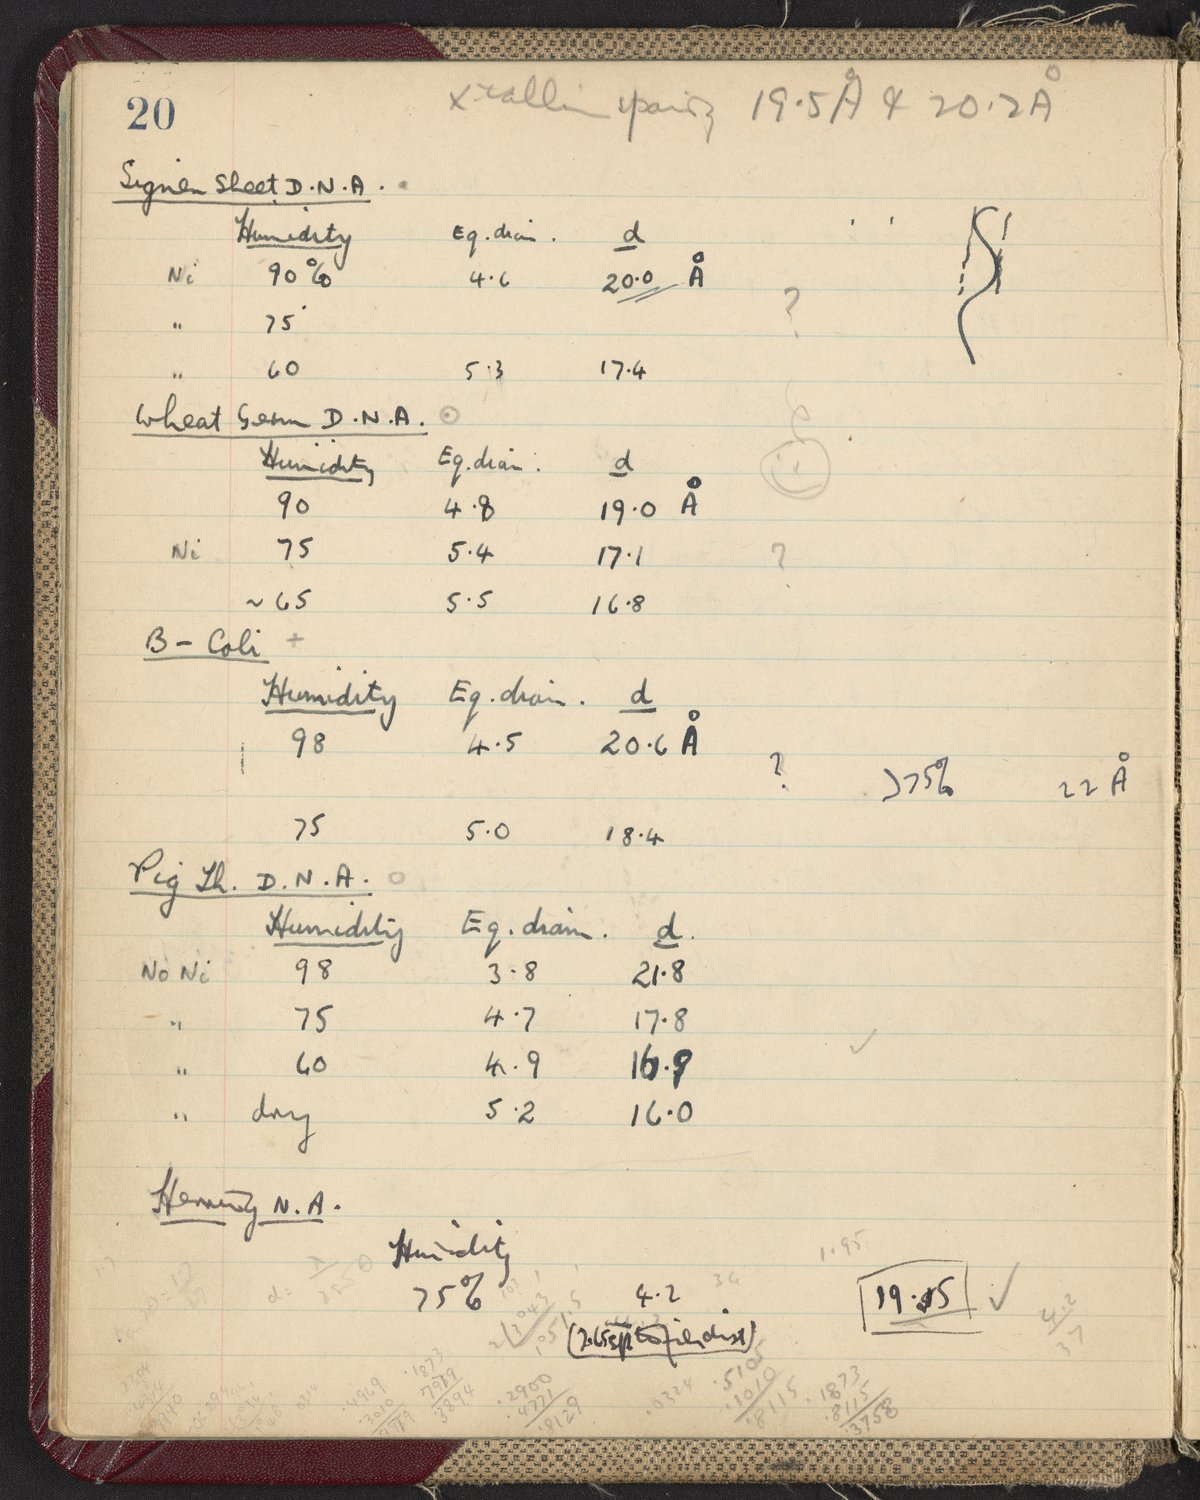 20
xtallin spacing 19.5Å & 20.2Å
Signer Sheet D.N.A.
Humidity Eq. diam. d
Ni 90% 4.6 20.0 Å
?
" 75
" 60 5.3 17.4
Wheat Germ D.N.A.
Humidity Eq. diam. d
90 4.8 19.0 Å
Ni 75 5.4 17.1 ?
~65 5.5 16.8
B-Coli +
Humidity Eq. diam. d
98 4.5 20.6 Å
? >75% 22 Å
75 5.0 18.4
Pig Th. D.N.A.
Humidity Eq. diam. d.
No Ni 98 3.8 21.8
" 75 4.7 17.8
" 60 4.9 16.9
" dry 5.2 16.0
N.A.
Humidity
1.95
75% 4.2 19.15 ✓
36
4.2
37
.1873
.7919
.3894
.4969
.2900
.4771
.8129
.0324
.5105
.3010
.8115
.1873
.8115
.3758